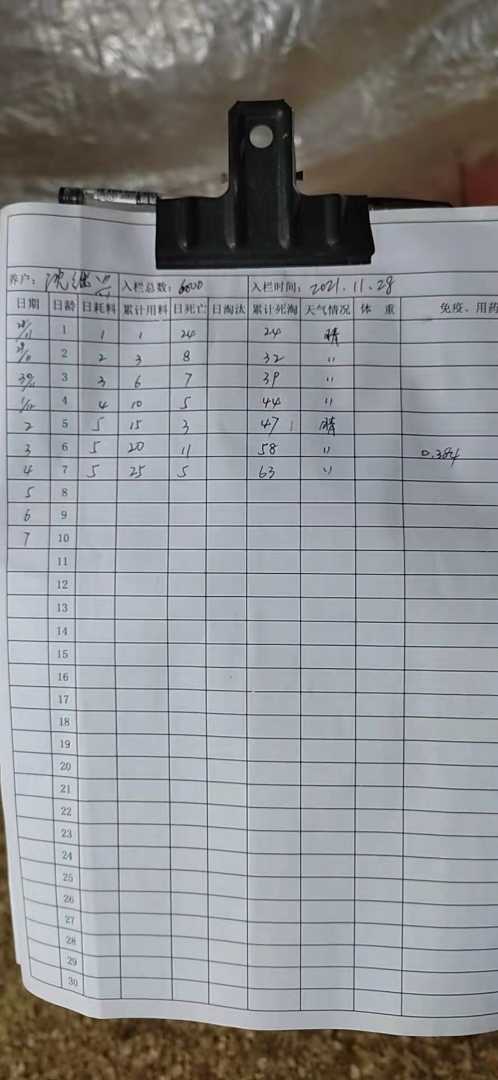 养户: 沈继兴 入栏总数: 6000 入栏时间: 2021.11.28
日期 日龄 日耗料 累计用料 日死亡 日淘汰 累计死淘 天气情况 体 重 免疫、用药
28/11 1 1 1 24 24 晴
29/11 2 2 3 8 32 〃
30/11 3 3 6 7 39 〃
1/12 4 4 10 5 44 〃
2 5 5 15 3 47 晴
3 6 5 20 11 58 〃 0.384
4 7 5 25 5 63 〃
5 8
6 9
7 10
11
12
13
14
15
16
17
18
19
20
21
22
23
24
25
26
27
28
29
30